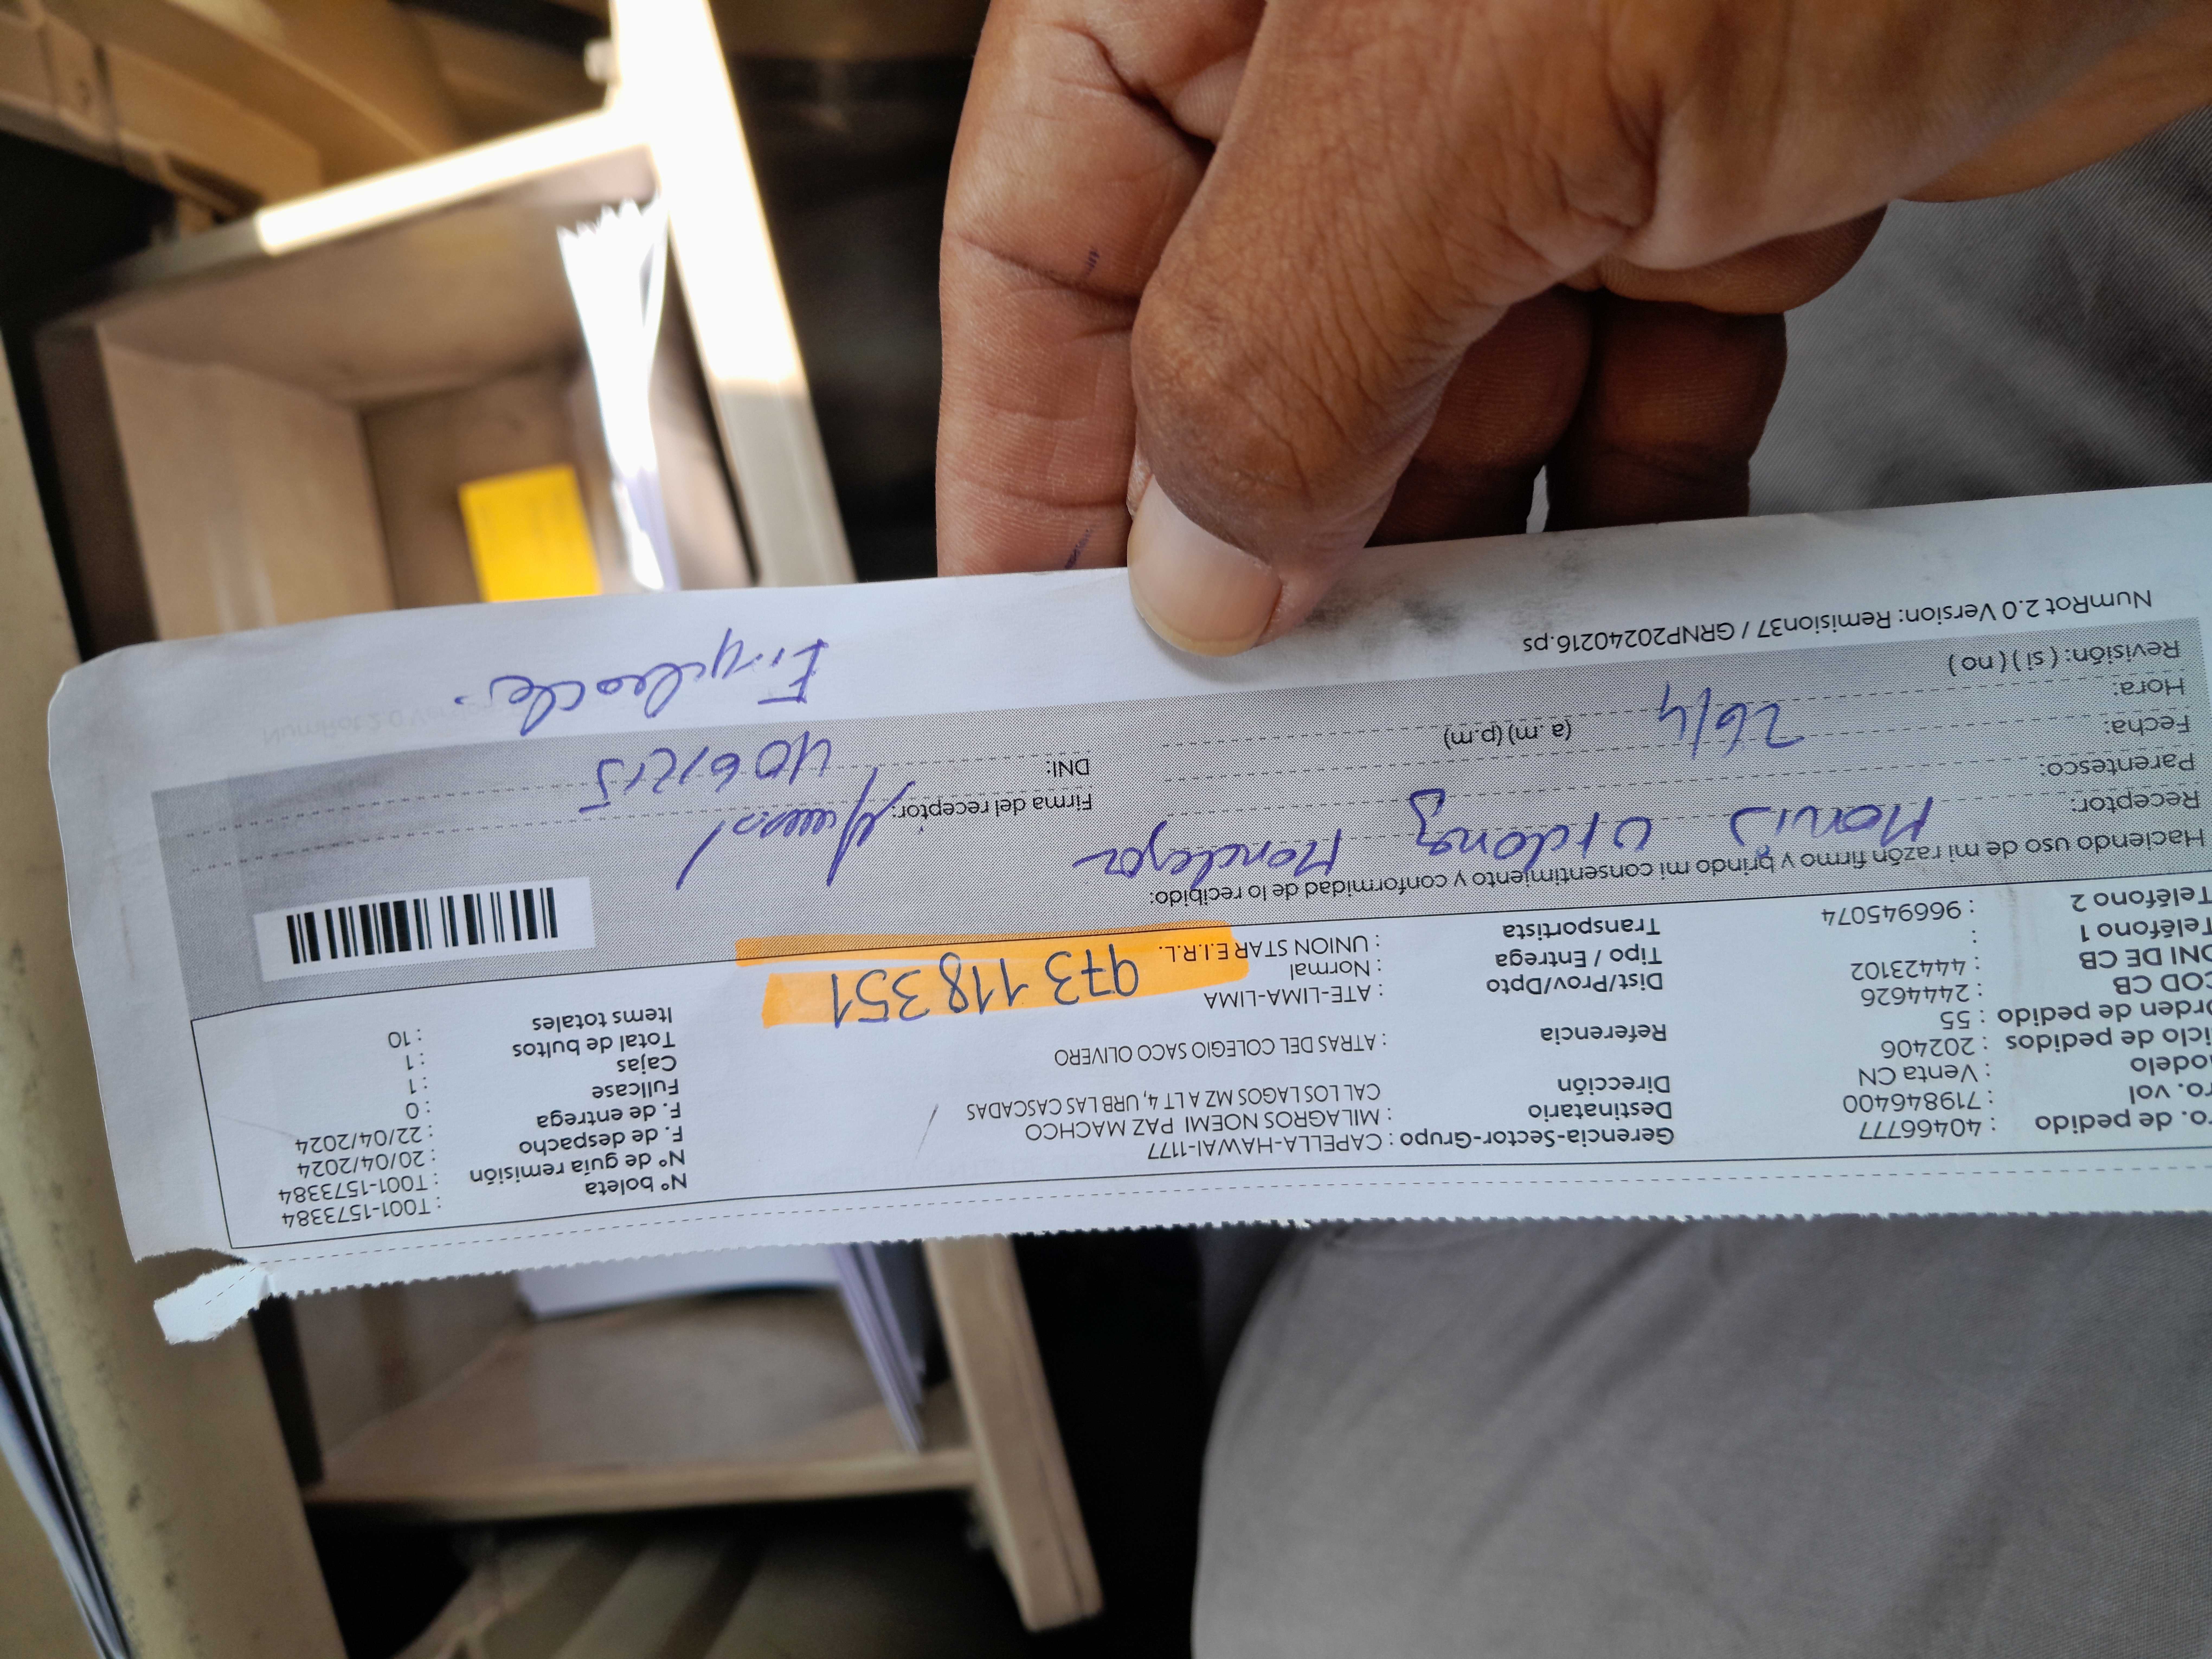 ro. de pedido : 40466777
ro. vol : 719846400
odelo : Venta CN
iclo de pedidos : 202406
rden de pedido : 55
COD CB : 2444626
DNI DE CB : 44423102
Teléfono 1 :
Teléfono 2 : 966945074
Gerencia-Sector-Grupo : CAPELLA-HAWAI-1177
Destinatario : MILAGROS NOEMI PAZ MACHCO
Dirección CAL LOS LAGOS MZ A LT 4, URB LAS CASCADAS
Referencia : ATRAS DEL COLEGIO SACO OLIVERO
Dist/Prov/Dpto : ATE-LIMA-LIMA
Tipo / Entrega : Normal
Transportista : UNION STAR E.I.R.L.
973 118 351
Nº boleta : T001-1573384
Nº de guía remisión : T001-1573384
F. de despacho : 20/04/2024
F. de entrega : 22/04/2024
Fullcase : 0
Cajas : 1
Total de bultos : 1
Items totales : 10
Haciendo uso de mi razón firmo y brindo mi consentimiento y conformidad de lo recibido:
Receptor:
Parentesco:
Fecha: 26/4
Hora: (a. m) (p.m)
Revisión: ( si ) ( no )
Firma del receptor:
DNI:
NumRot 2.0 Version: Remision37 / GRNP20240216.ps